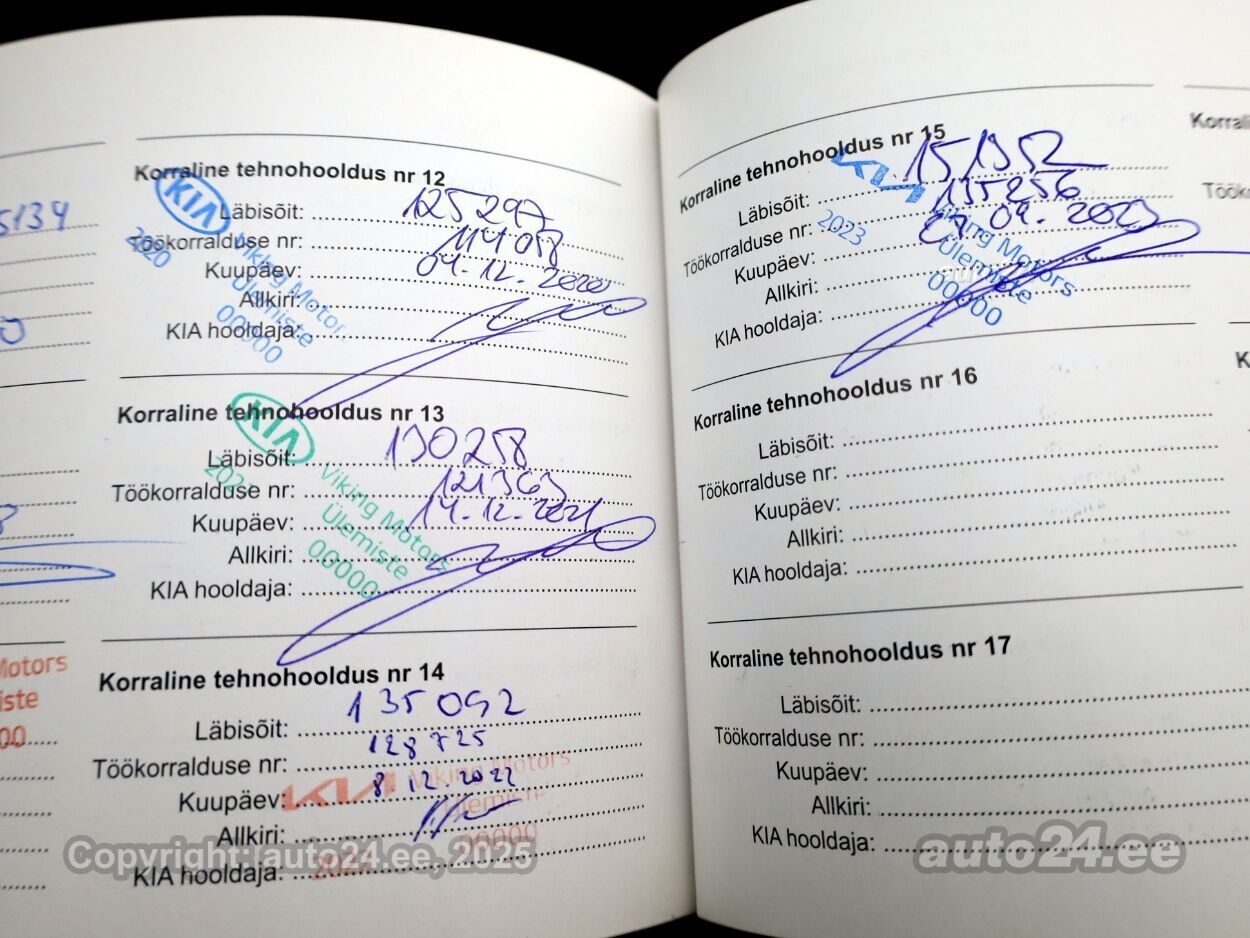 5134
Motors
iste
00
Korraline tehnohooldus nr 12
KIA
Läbisõit: 125297
Töökorralduse nr: 114058
2020
Kuupäev: 04.12.2020
Viking Motors
Allkiri:
Ülemiste
KIA hooldaja:
00000
Korraline tehnohooldus nr 13
KIA
Läbisõit: 130258
Töökorralduse nr: 121363
2021
Kuupäev: 14.12.2021
Viking Motors
Allkiri:
Ülemiste
KIA hooldaja:
00000
Korraline tehnohooldus nr 14
Läbisõit: 135092
Töökorralduse nr: 128725
Viking Motors
Kuupäev: 8 12.2022
KIA
Ülemiste
Allkiri:
00000
KIA hooldaja:
2022
Korraline tehnohooldus nr 15
KIA
Läbisõit:
Töökorralduse nr: 135256
2023
Kuupäev: 09.2023
Viking Motors
Allkiri:
Ülemiste
KIA hooldaja:
00000
Korraline tehnohooldus nr 16
Läbisõit:
Töökorralduse nr:
Kuupäev:
Allkiri:
KIA hooldaja:
Korraline tehnohooldus nr 17
Läbisõit:
Töökorralduse nr:
Kuupäev:
Allkiri:
KIA hooldaja:
Korrali
Töök
K
Copyright: auto24.ee, 2025
auto24.ee